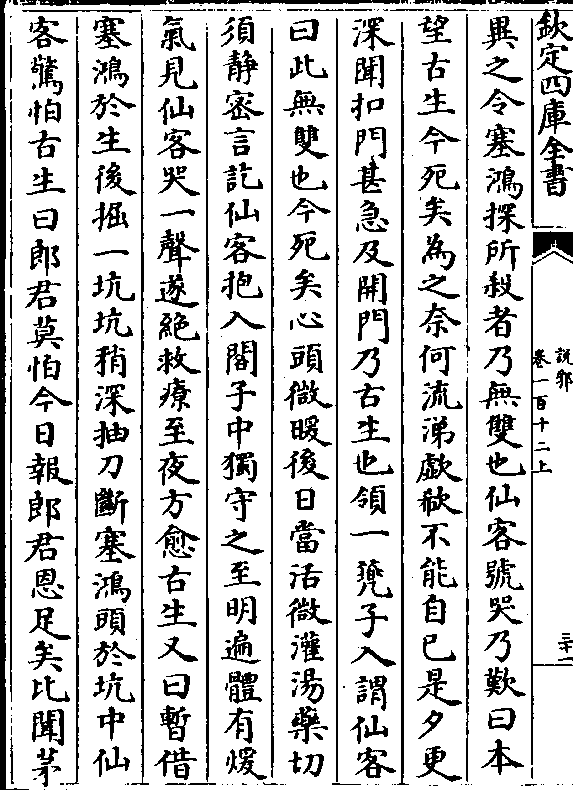 欽定四庫全書
說郛
卷一百十二上
三十一
異之令塞鴻探所殺者乃無雙也仙客號哭乃歎曰本
望古生今死矣為之奈何流涕歔欷不能自已是夕更
深聞扣門甚急及開門乃古生也領一篼子入謂仙客
曰此無雙也今死矣心頭微暖後日當活微灌湯藥切
須静宻言訖仙客抱入閤子中獨守之至明遍體有煖
氣見仙客哭一聲遂絶救療至夜方愈古生又曰暫借
塞鴻於生後掘一坑坑稍深抽刀斷塞鴻頭於坑中仙
客驚怕古生曰郎君莫怕今日報郎君恩足矣比聞茅